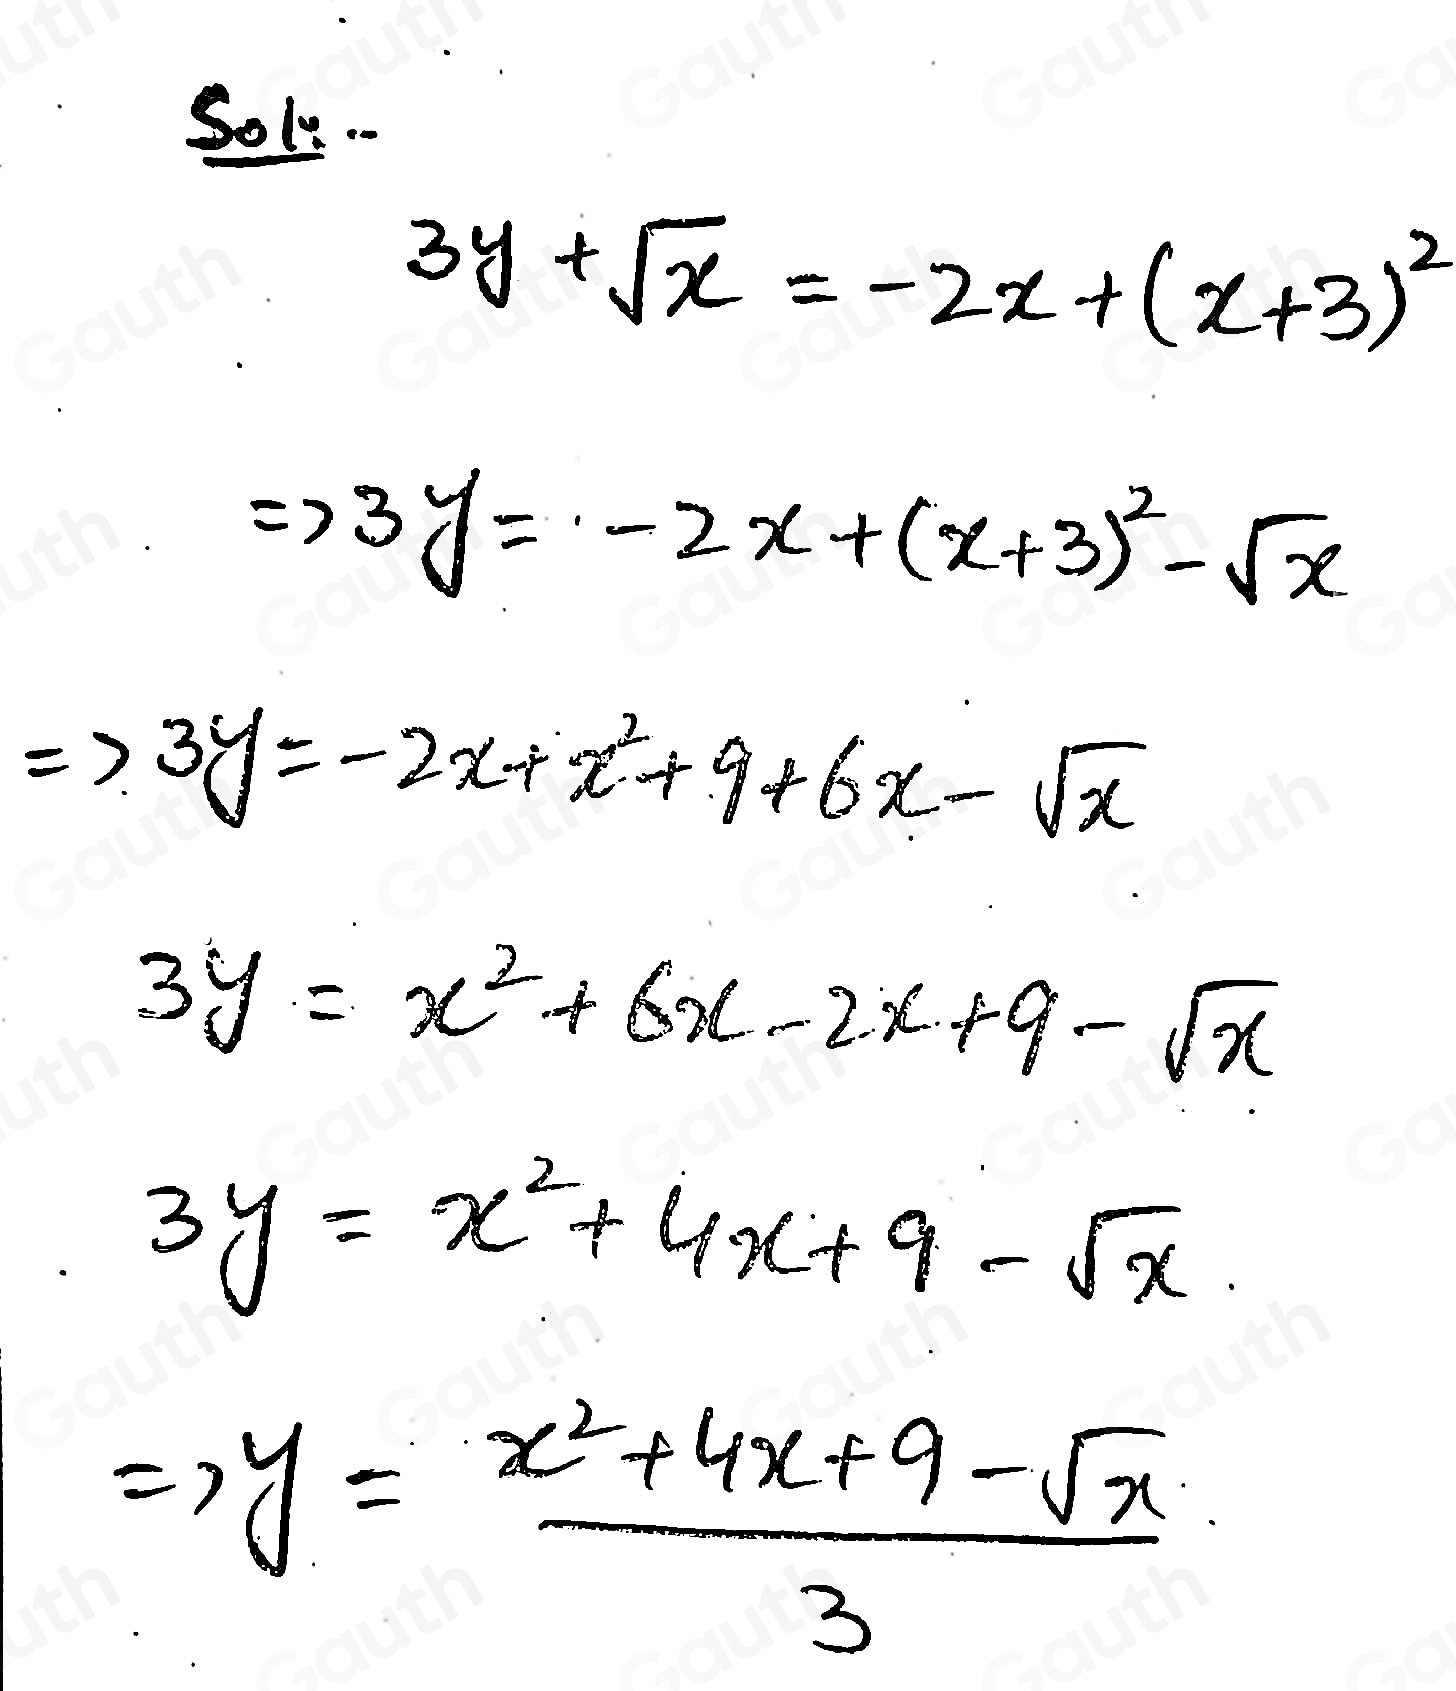 Sol:-
3y + √x = -2x + (x+3)²
=> 3y = -2x + (x+3)² - √x
=> 3y = -2x + x² + 9 + 6x - √x
3y = x² + 6x - 2x + 9 - √x
3y = x² + 4x + 9 - √x
=> y = x² + 4x + 9 - √x
3
Gauth